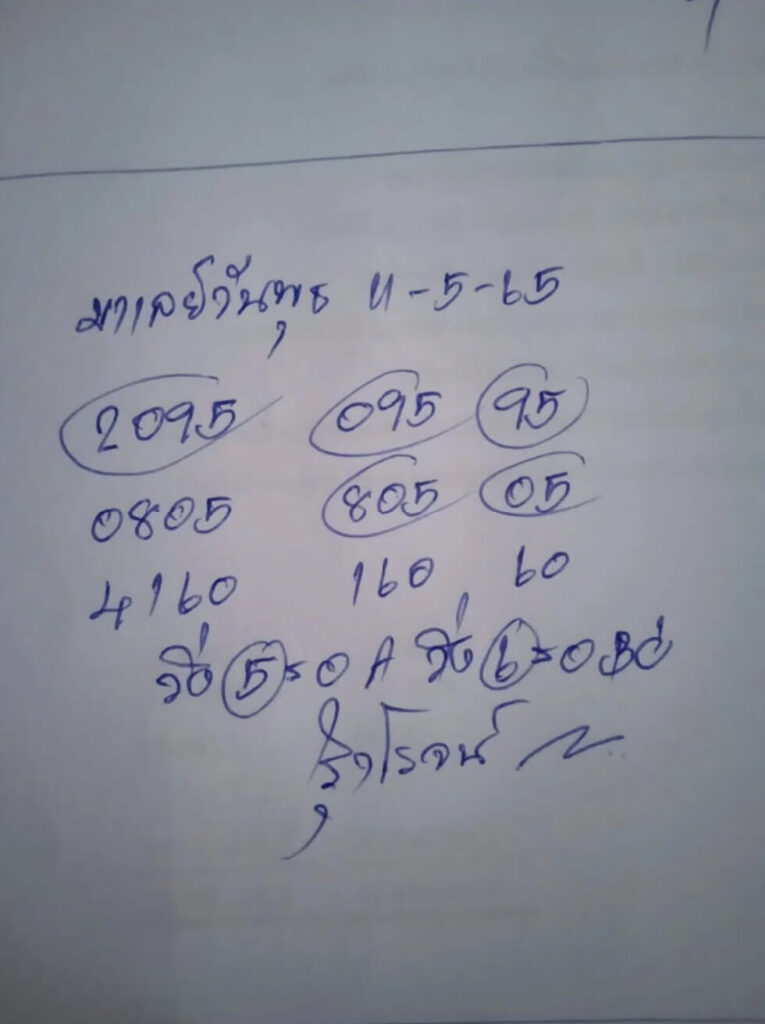 มาเลย์วันพุธ 11-5-65
2095 095 95
0805 805 05
4160 160 60
วิ่ง 5=0 A วิ่ง 6=0 BC
รุ่งโรจน์